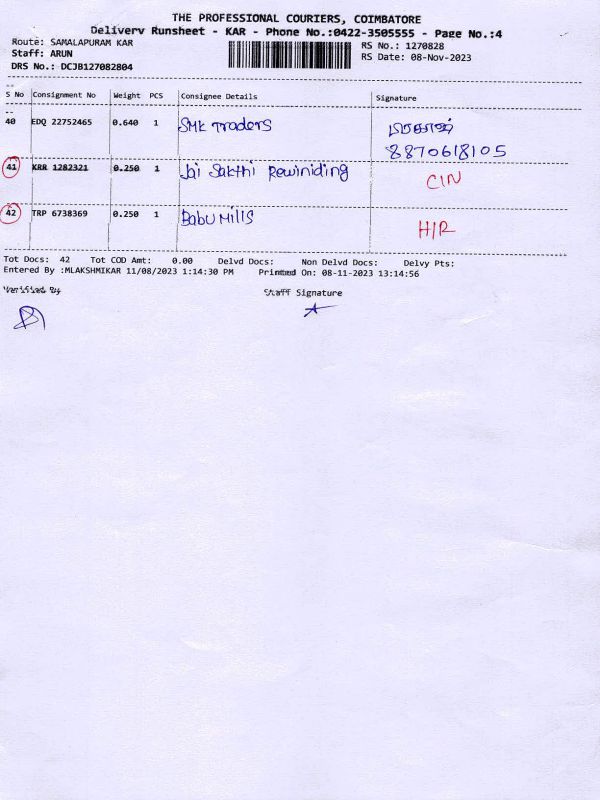 THE PROFESSIONAL COURIERS, COIMBATORE
Delivery Runsheet - KAR - Phone No.:0422-3505555 - Page No.:4
Route: SAMALAPURAM KAR
Staff: ARUN
DRS No.: DCJB127082804
RS No.: 1270828
RS Date: 08-Nov-2023
S No Consignment No Weight PCS Consignee Details Signature
40 EDQ 22752465 0.640 1 SMK Traders
8870618105
41 KRR 1282321 0.250 1 Jai Sakthi Rewiniding CIN
42 TRP 6738369 0.250 1 Babu Mills H/R
Tot Docs: 42 Tot COD Amt: 0.00 Delvd Docs: Non Delvd Docs: Delvy Pts:
Entered By :MLAKSHMIKAR 11/08/2023 1:14:30 PM Printed On: 08-11-2023 13:14:56
Verified By Staff Signature